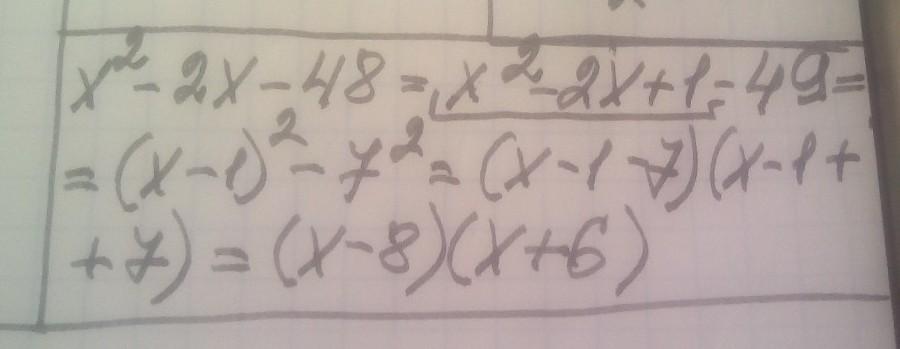 x² - 2x - 48 = x² - 2x + 1 - 49 =
= (x - 1)² - 7² = (x - 1 - 7)(x - 1 +
+ 7) = (x - 8)(x + 6)